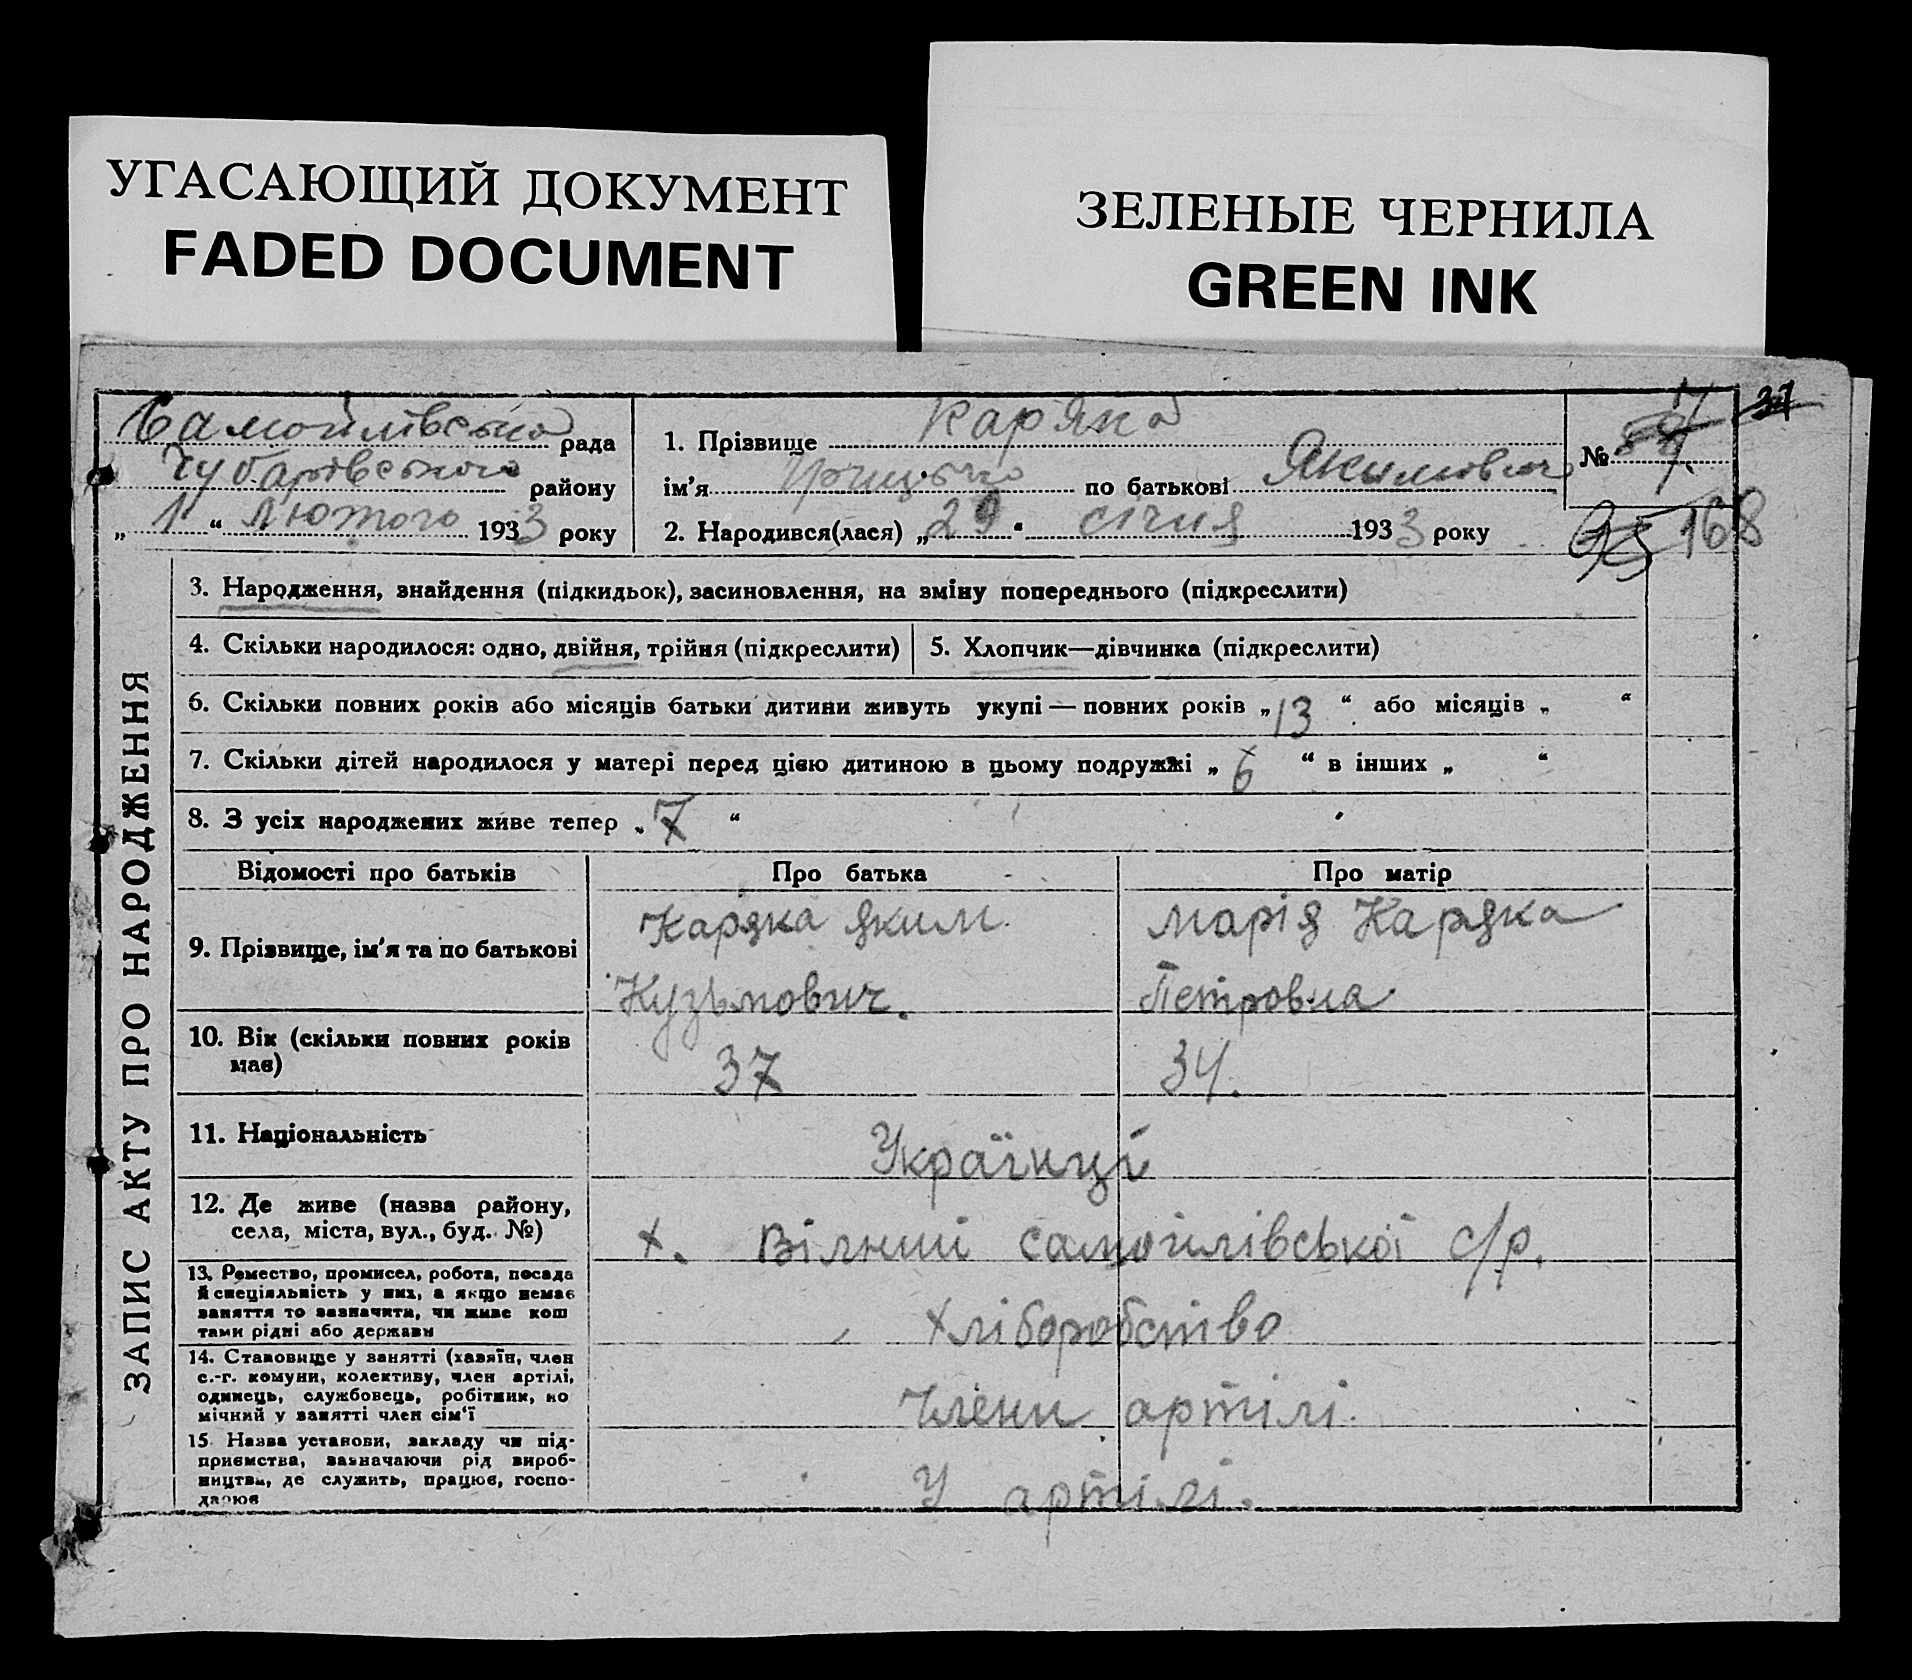 УГАСАЮЩИЙ ДОКУМЕНТ
FADED DOCUMENT
ЗЕЛЕНЫЕ ЧЕРНИЛА
GREEN INK
Самойлівська рада
Чубарівського району
„ 1 “ лютого 1933 року
1. Прізвище Кар'яка
ім'я Грицько по батькові Якимович
2. Народився(лася) „ 29 “ січня 1933 року
№ 7.
17
31
95 168
ЗАПИС АКТУ ПРО НАРОДЖЕННЯ
3. Народження, знайдення (підкидьок), засиновлення, на зміну попереднього (підкреслити)
4. Скільки народилося: одно, двійня, трійня (підкреслити)
5. Хлопчик—дівчинка (підкреслити)
6. Скільки повних років або місяців батьки дитини живуть укупі — повних років „ 13 “ або місяців „ “
7. Скільки дітей народилося у матері перед цією дитиною в цьому подружжі „ 6 “ в інших „ “
8. З усіх народжених живе тепер „ 7 “
Відомості про батьків
Про батька
Про матір
9. Прізвище, ім'я та по батькові
Каряка Яким
Кузьмович.
Марія Каряка
Петровна
10. Вік (скільки повних років
має)
37
34.
11. Національність
Українці
12. Де живе (назва району,
села, міста, вул., буд. №)
х. Вільний Самойлівської с/р.
13. Ремество, промисел, робота, посада
й спеціяльність у них, а якщо немає
заняття то зазначити, чи живе кош
тами рідні або держави
хліборобство
14. Становище у занятті (хазяїн, член
с.-г. комуни, колективу, член артілі,
одинець, службовець, робітник, по
мічний у занятті член сім'ї
Члени артілі.
15. Назва установи, закладу чи під-
приємства, зазначаючи рід вироб-
ництва, де служить, працює, госпо-
дарює
У артілі.